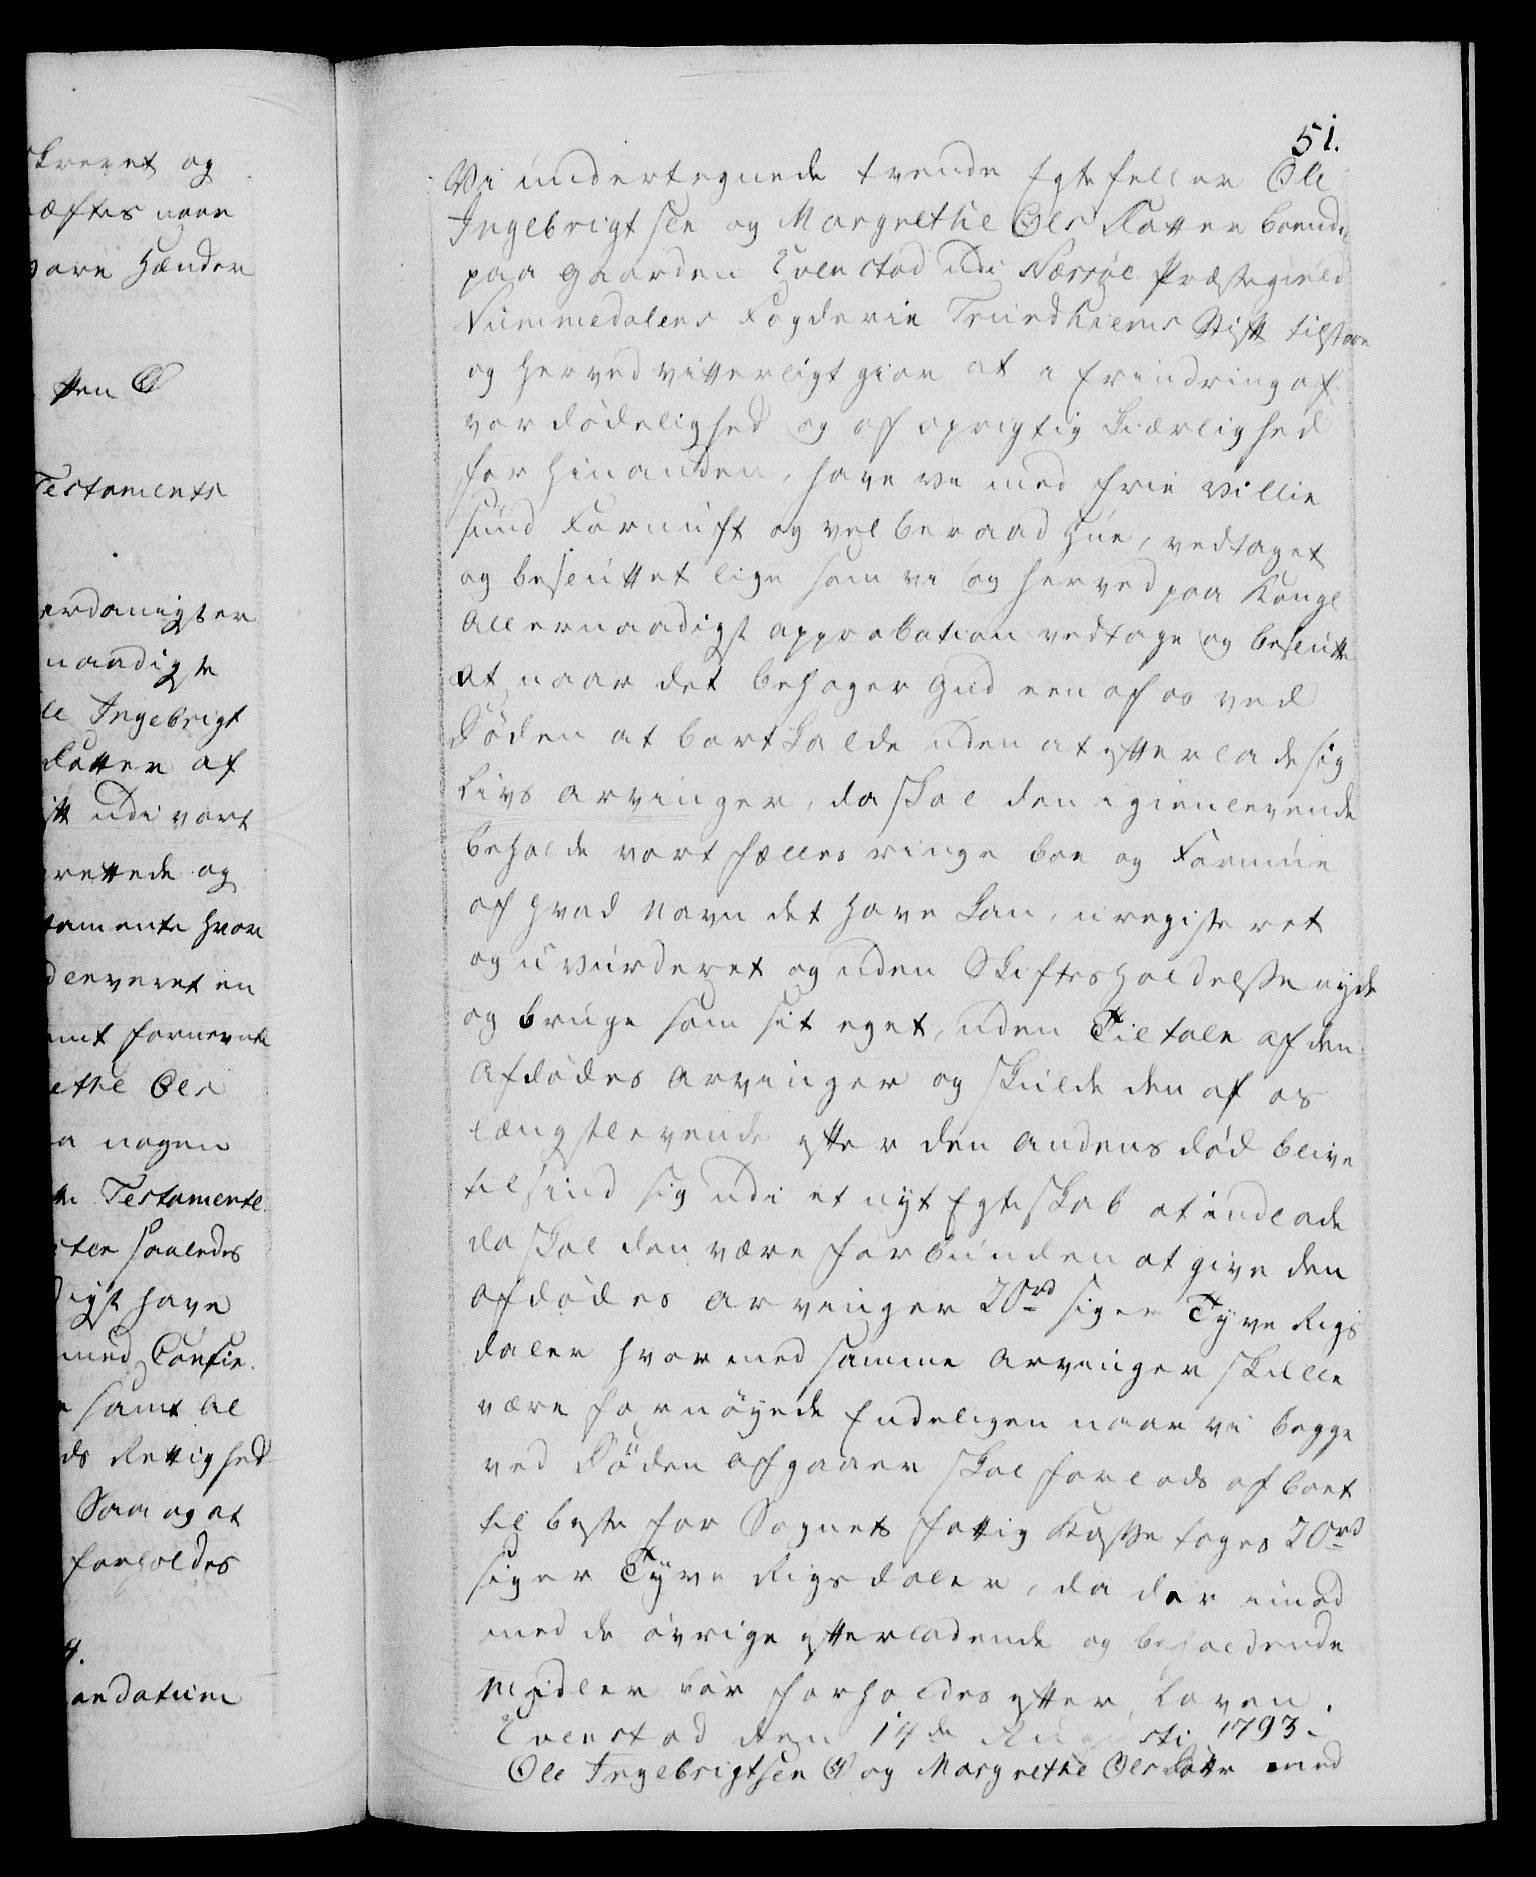 krevet og
æftes uden
vare Hænder
tten Ø
Testaments
erdanigster
naadigste
le Ingebrigt
datter af
tt udi vort
rettede og
tamente hvor
dleveret en
mt fornevnte
ethe Ols
a nogen
te Testamente
ster saaledes
digst have
med Confir
samt al
ds Rettighed
Saa og at
forholdes
andatum
51.
Vi undertegnede tvende Egtefeller Ole
Ingebrigtsen og Margrethe Ols Datter boende
paa gaarden Evenstad udi Nærröe Præstegield
Nummedalens Fogderie Trundhiems Stift tilstaae
og herved vitterligt giør at i Erindring af
vor dödelighed og af oprigtig Kiærlighed
for hinanden, have vi med frie Villie
sund Fornuft og velberaad Hue, vedtaget
og besluttet lige som vi og herved paa Kongl
Allernaadigst approbation vedtage og beslutte
At naar det behager Gud een af os ved
Döden at bortkalde uden at efterlade sig
Livs Arvinger, da skal den igienlevende
beholde vort fælles ringe boe og Formue
af hvad Navn det have kan, uregisteret
og uvurderet og uden Skiftes holdelsse nyde
og bruge som sit eget, uden Tiltale af den
Afdödes Arvinger og skulde den af os
længstlevende efter den andens död blive
til sind sig udi et nyt Egteskab at indlade
da skal den være forbunden at give den
Afdödes Arvinger 20rd siger Tyve Rigs
daler hvormed samme Arvinger skulle
være fornöyede Endeligen naar vi begge
ved Döden afgaaer skal forlods af boet
til beste for Sognets fattig Kasse tages 20rd
siger Tyve Rigsdaler, da der imod
med de övrige efterladende og beholdende
Midler bör forholdes efter Loven.
Evenstad den 14de Augusti 1793.
Ole Ingebrigtsen Ø og Margrethe Olsdatter med